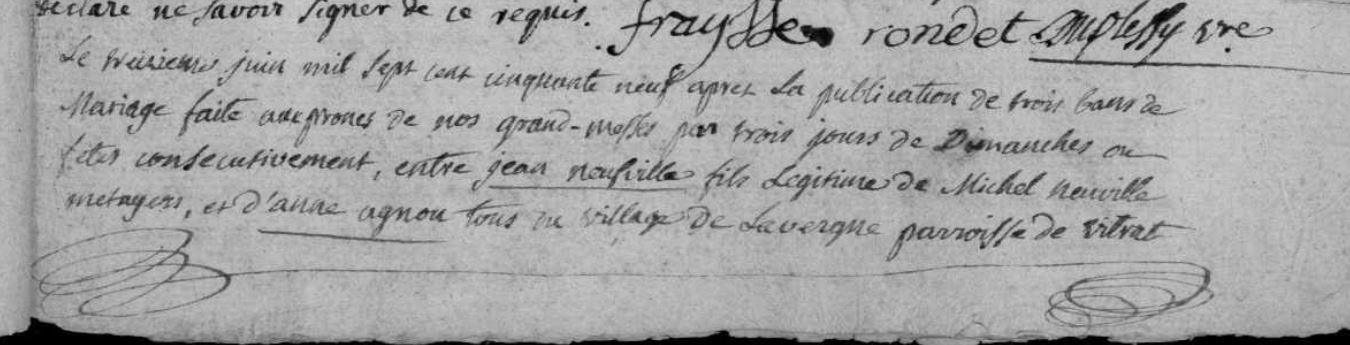 declare ne savoir signer de ce requis. fraysse rondet Duplessy vre
Le treizieme juin mil sept cent cinquante neuf apres La publication de trois bans de
Mariage faite aux prones de nos grand-messes par trois jours de Dimanches ou
fetes consecutivement, entre jean neufville fils Legitime de Michel neuville
metayers, et d'anne agnou tous du village de Lavergne parroisse de vitrat